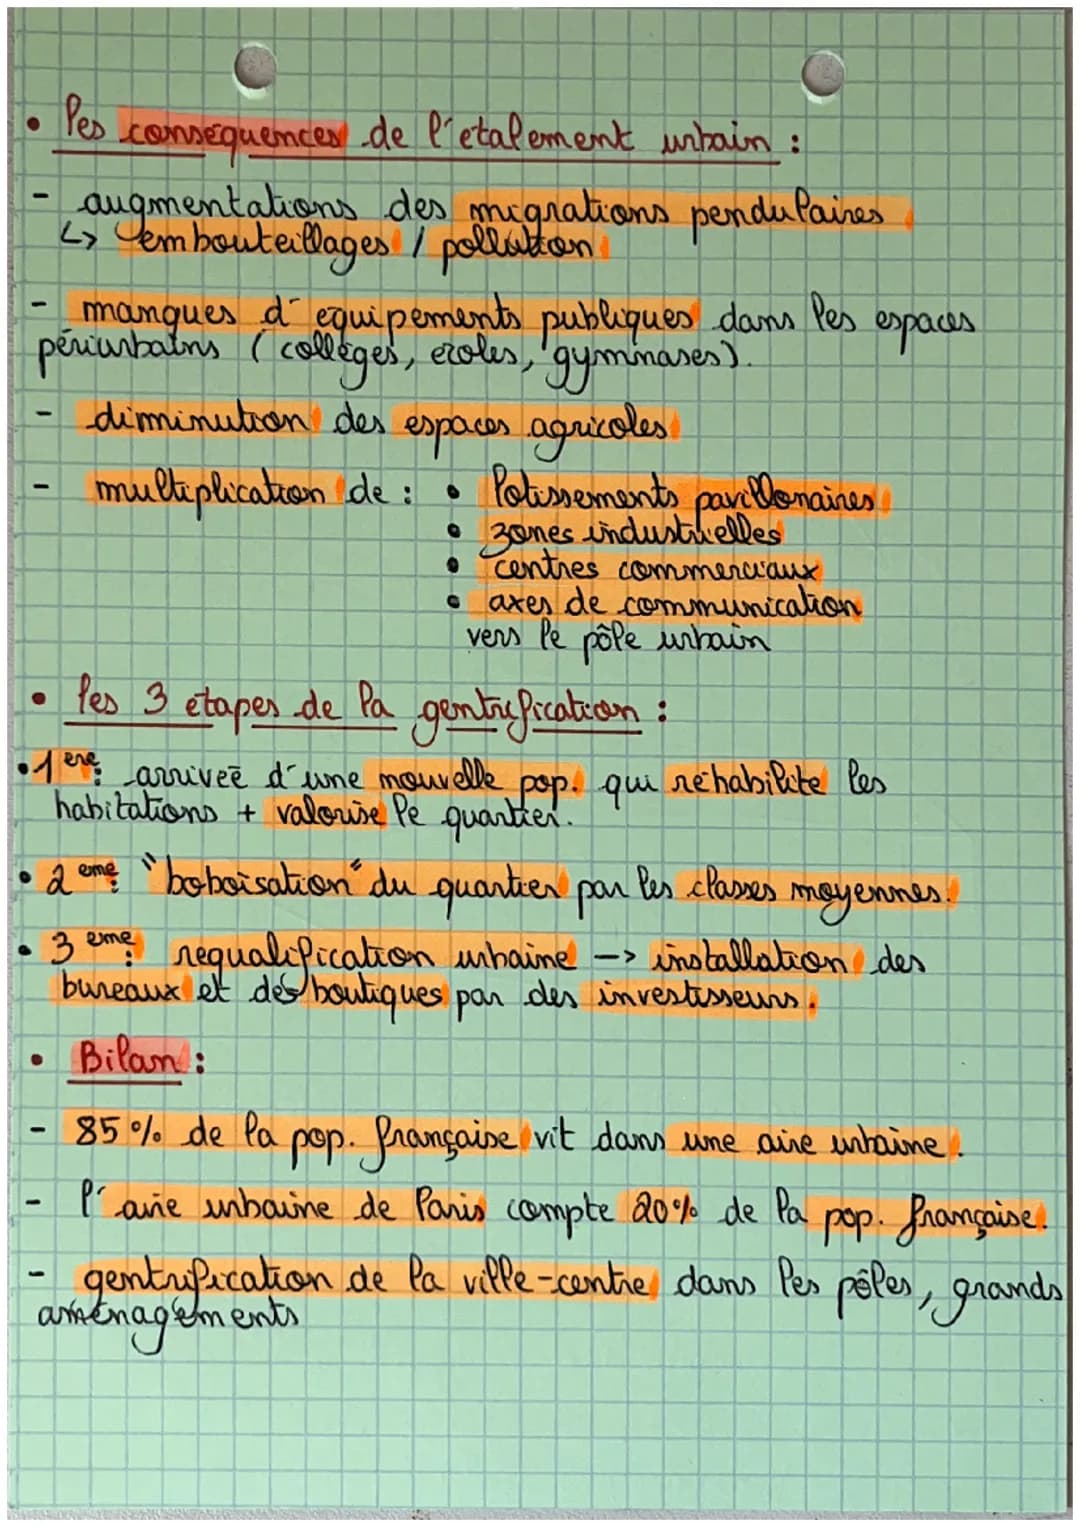 • les conséquences de l'étalement urbain :
- augmentations des migrations pendulaires
↳ embouteillages / pollution
- manques d'équipements publiques dans les espaces
périurbains (collèges, écoles, gymnases).
- diminution des espaces agricoles
- multiplication de : • lotissements pavillonaires
• zones industrielles
• centres commerciaux
• axes de communication
vers le pôle urbain
• les 3 étapes de la gentrification :
• 1ère : arrivée d'une nouvelle pop. qui réhabilite les
habitations + valorise le quartier.
• 2eme : "boboïsation" du quartier par les classes moyennes.
• 3eme : requalification urbaine -> installation des
bureaux et des boutiques par des investisseurs.
• Bilan :
- 85% de la pop. française vit dans une aire urbaine.
- l'aire urbaine de Paris compte 20% de la pop. française.
- gentrification de la ville-centre dans les pôles, grands
aménagements